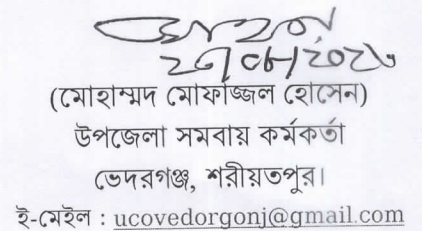 (মোহাম্মদ মোফাজ্জল হোসেন)
উপজেলা সমবায় কর্মকর্তা
ভেদরগঞ্জ, শরীয়তপুর।
ই-মেইল : ucovedorgonj@gmail.com